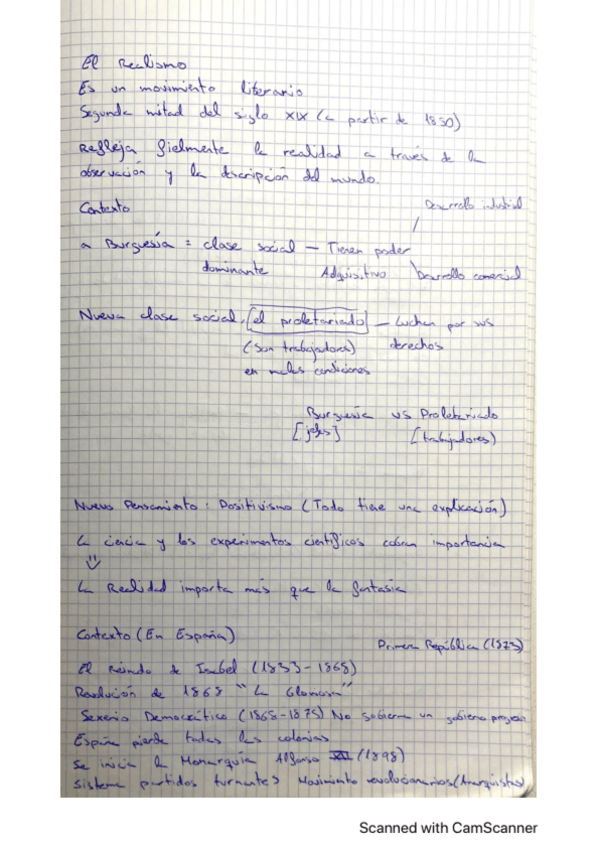 El Realismo
Es un movimiento literario
Segunda mitad del siglo XIX (a partir de 1850)
Refleja fielmente la realidad a través de la
observación y la descripción del mundo.
Contexto
Desarrollo industrial
a Burguesía = clase social — Tienen poder
dominante Adquisitivo Desarrollo comercial
Nueva clase social, [el proletariado] — Luchan por sus
(Son trabajadores) derechos
en malas condiciones
Burguesía vs Proletariado
[jefes] [trabajadores)
Nuevo Pensamiento: Positivismo (Todo tiene una explicación)
La ciencia y los experimentos científicos cobran importancia
La Realidad importa más que la fantasía
Contexto (En España)
Primera República (1873)
El Reinado de Isabel (1833-1868)
Revolución de 1868 "La Gloriosa"
Sexenio Democrático (1868-1875) No gobierna un gobierno
España pierde todas las colonias
Se inicia la Monarquía Alfonso XII (1898)
Sistema partidos turnantes Movimiento revolucionarios (Anarquistas)
Scanned with CamScanner